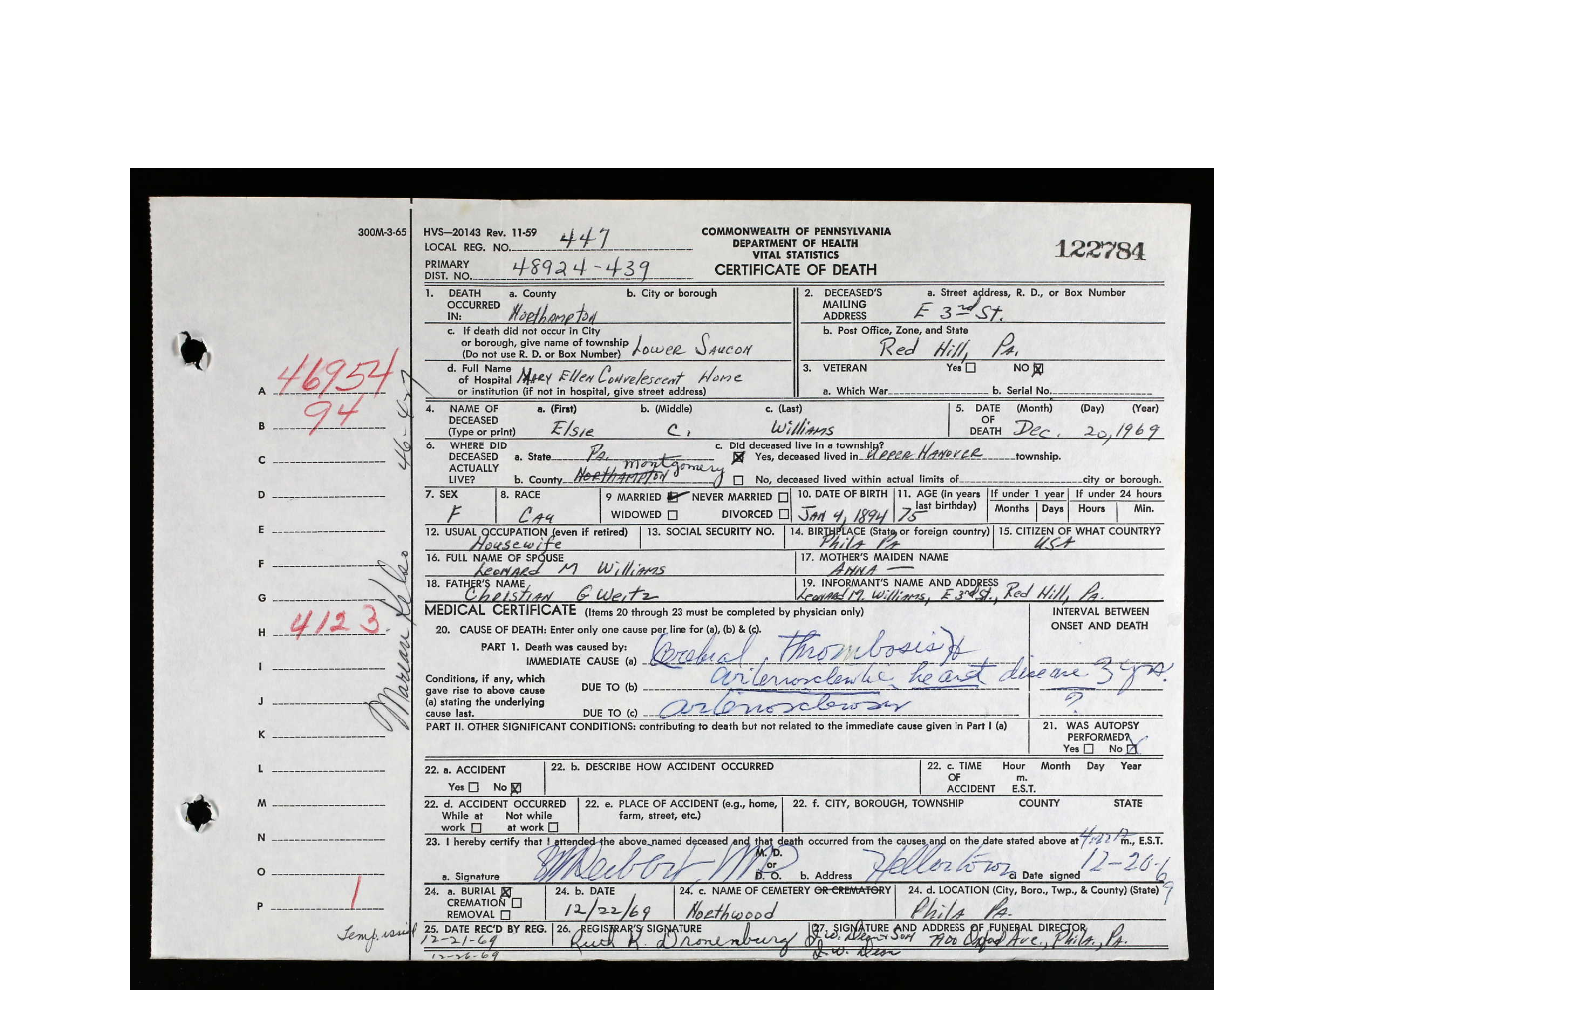 300M-3-65
HVS—20143 Rev. 11-59
LOCAL REG. NO. 447
PRIMARY DIST. NO. 48924-439
COMMONWEALTH OF PENNSYLVANIA
DEPARTMENT OF HEALTH
VITAL STATISTICS
CERTIFICATE OF DEATH
122784
1. DEATH OCCURRED IN: a. County Northampton b. City or borough
c. If death did not occur in City or borough, give name of township (Do not use R. D. or Box Number) Lower Saucon
d. Full Name of Hospital or institution (if not in hospital, give street address) Mary Ellen Convelescent Home
2. DECEASED'S MAILING ADDRESS a. Street address, R. D., or Box Number E 3rd St.
b. Post Office, Zone, and State Red Hill, Pa.
3. VETERAN Yes No X
a. Which War b. Serial No.
4. NAME OF DECEASED (Type or print) a. (First) Elsie b. (Middle) C. c. (Last) Williams
5. DATE OF DEATH (Month) (Day) (Year) Dec. 20, 1969
6. WHERE DID DECEASED ACTUALLY LIVE? a. State Pa.
b. County Northampton Montgomery
c. Did deceased live in a township?
X Yes, deceased lived in Upper Hanover township.
No, deceased lived within actual limits of city or borough.
7. SEX F
8. RACE Cau
9 MARRIED NEVER MARRIED
WIDOWED DIVORCED
10. DATE OF BIRTH Jan 4, 1894
11. AGE (In years last birthday) 75
If under 1 year Months Days
If under 24 hours Hours Min.
12. USUAL OCCUPATION (even if retired) Housewife
13. SOCIAL SECURITY NO.
14. BIRTHPLACE (State or foreign country) Phila Pa
15. CITIZEN OF WHAT COUNTRY? USA
16. FULL NAME OF SPOUSE Leonard M Williams
17. MOTHER'S MAIDEN NAME Anna —
18. FATHER'S NAME Christian G Weitz
19. INFORMANT'S NAME AND ADDRESS Leonard M. Williams, E 3rd St., Red Hill, Pa.
MEDICAL CERTIFICATE (Items 20 through 23 must be completed by physician only)
INTERVAL BETWEEN ONSET AND DEATH
20. CAUSE OF DEATH: Enter only one cause per line for (a), (b) & (c).
PART 1. Death was caused by:
IMMEDIATE CAUSE (a) Cerebral Thrombosis
Conditions, if any, which gave rise to above cause (a) stating the underlying cause last.
DUE TO (b) arteriosclerotic heart disease 3 yrs.
DUE TO (c) arteriosclerosis ?
PART II. OTHER SIGNIFICANT CONDITIONS: contributing to death but not related to the immediate cause given in Part I (a)
21. WAS AUTOPSY PERFORMED?
Yes No
22. a. ACCIDENT
Yes No X
22. b. DESCRIBE HOW ACCIDENT OCCURRED
22. c. TIME OF ACCIDENT Hour Month Day Year
m.
E.S.T.
22. d. ACCIDENT OCCURRED
While at work Not while at work
22. e. PLACE OF ACCIDENT (e.g., home, farm, street, etc.)
22. f. CITY, BOROUGH, TOWNSHIP COUNTY STATE
23. I hereby certify that I attended the above named deceased and that death occurred from the causes and on the date stated above at m., E.S.T.
a. Signature M. D. or D. O. b. Address Hellertown Date signed 12-20-69
24. a. BURIAL X
CREMATION
REMOVAL
24. b. DATE 12/22/69
24. c. NAME OF CEMETERY OR CREMATORY Northwood
24. d. LOCATION (City, Boro., Twp., & County) (State) Phila Pa.
25. DATE REC'D BY REG. 12-21-69
12-26-69
26. REGISTRAR'S SIGNATURE Ruth R. Dronenburg
27. SIGNATURE AND ADDRESS OF FUNERAL DIRECTOR Ave., Phila., Pa.
A 46954
B 94
C
D
E
F
G
H 4123
I
J
K
L
M
N
O
P 1
46-427
Marian Kelso